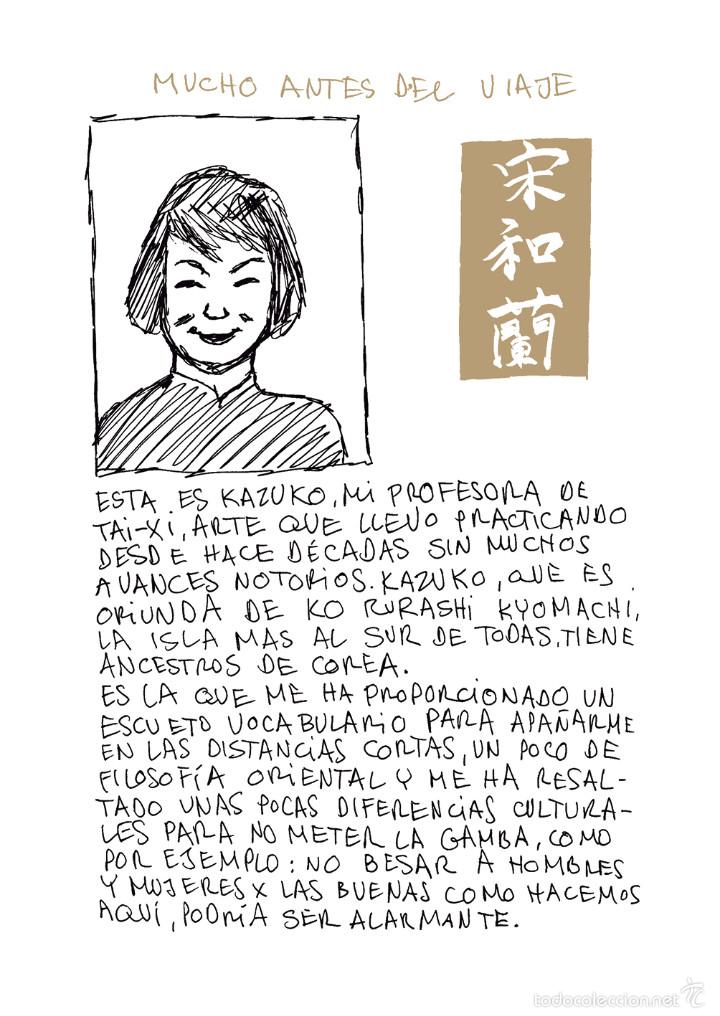 MUCHO ANTES DEL VIAJE
宋
和
蘭
ESTA ES KAZUKO, MI PROFESORA DE
TAI-XI, ARTE QUE LLEVO PRACTICANDO
DESDE HACE DÉCADAS SIN MUCHOS
AVANCES NOTORIOS. KAZUKO, QUE ES
ORIUNDA DE KO RURASHI KYOMACHI,
LA ISLA MAS AL SUR DE TODAS, TIENE
ANCESTROS DE COREA.
ES LA QUE ME HA PROPORCIONADO UN
ESCUETO VOCABULARIO PARA APAÑARME
EN LAS DISTANCIAS CORTAS, UN POCO DE
FILOSOFÍA ORIENTAL Y ME HA RESAL-
TADO UNAS POCAS DIFERENCIAS CULTURA-
LES PARA NO METER LA GAMBA, COMO
POR EJEMPLO: NO BESAR A HOMBRES
Y MUJERES X LAS BUENAS COMO HACEMOS
AQUÍ, PODRÍA SER ALARMANTE.
todocoleccion.net